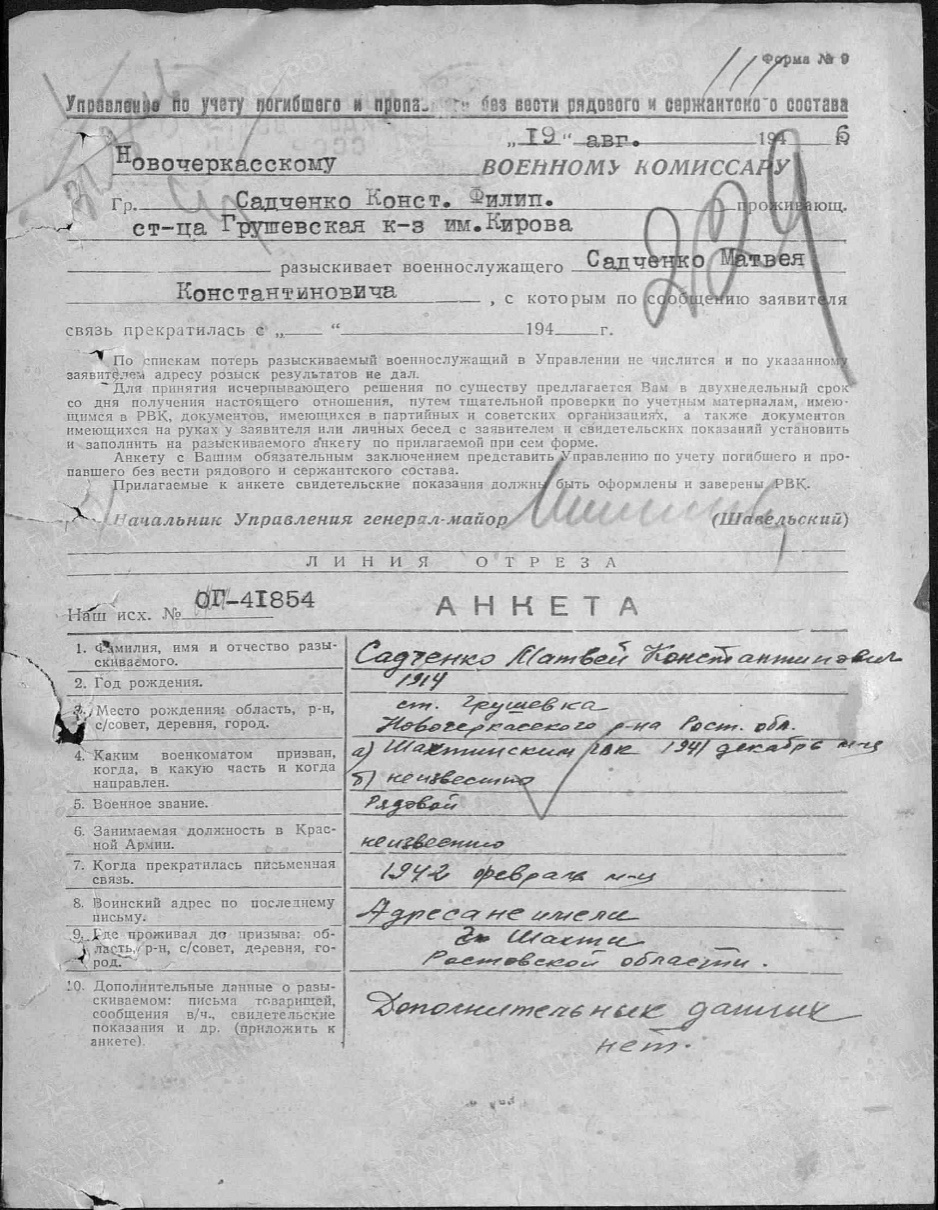 Форма № 9
117
Управление по учету погибшего и пропа   без вести рядового и сержантского состава
„19“ авг. 1946
Новочеркасскому ВОЕННОМУ КОМИССАРУ
Гр. Садченко Конст. Филип. проживающ.
ст-ца Грушевская к-з им.Кирова
разыскивает военнослужащего Садченко Матвея
Константиновича, с которым по сообщению заявителя
связь прекратилась с „ “ 194 г.
По спискам потерь разыскиваемый военнослужащий в Управлении не числится и по указанному
заявителем адресу розыск результатов не дал.
Для принятия исчерпывающего решения по существу предлагается Вам в двухнедельный срок
со дня получения настоящего отношения, путем тщательной проверки по учетным материалам, имею-
щимся в РВК, документов, имеющихся в партийных и советских организациях, а также документов
имеющихся на руках у заявителя или личных бесед с заявителем и свидетельских показаний установить
и заполнить на разыскиваемого анкету по прилагаемой при сем форме.
Анкету с Вашим обязательным заключением представить Управлению по учету погибшего и про-
павшего без вести рядового и сержантского состава.
Прилагаемые к анкете свидетельские показания должны быть оформлены и заверены РВК.
Начальник Управления генерал-майор (Шавельский)
ЛИНИЯ ОТРЕЗА
Наш исх. № ОП-41854 АНКЕТА
1. Фамилия, имя и отчество разы-
скиваемого.
Садченко Матвей Константинович
2. Год рождения.
1914
3. Место рождения: область, р-н,
с/совет, деревня, город.
ст. Грушевка
Новочеркасского р-на Рост. обл.
4. Каким военкоматом призван,
когда, в какую часть и когда
направлен.
а) Шахтинским гвк 1941 декабрь м-ц
б) неизвестно
5. Военное звание.
Рядовой
6. Занимаемая должность в Крас-
ной Армии.
неизвестно
7. Когда прекратилась письменная
связь.
1942 февраль м-ц
8. Воинский адрес по последнему
письму.
Адреса не имели
9. Где проживал до призыва: об-
ласть, р-н, с/совет, деревня, го-
род.
Шахти
Ростовской области.
10. Дополнительные данные о разы-
скиваемом: письма товарищей,
сообщения в/ч., свидетельские
показания и др. (приложить к
анкете).
Дополнительных данных
нет.